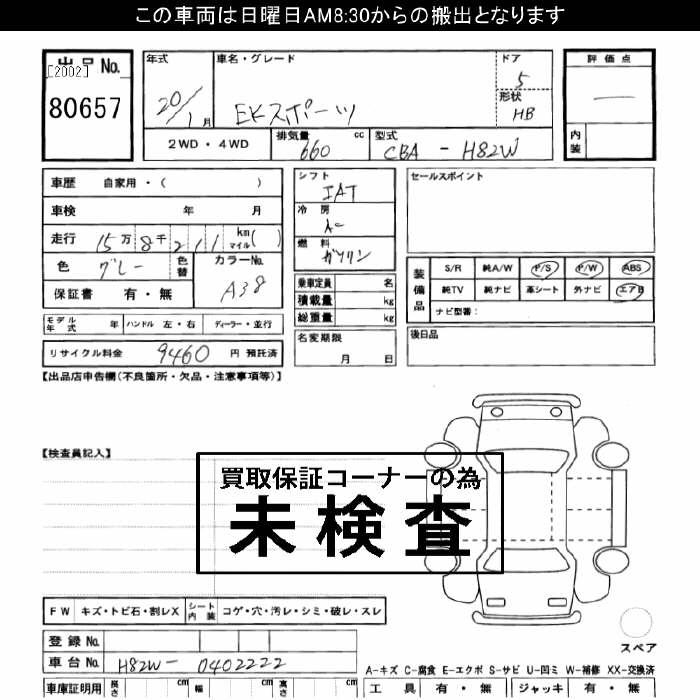 この車両は日曜日AM8:30からの搬出となります
出品No.
[2002]
80657
年式
20/1月
車名・グレード
EKスポーツ
ドア
5
形状
HB
評価点
—
内装
2WD・4WD
排気量
660 cc
型式
CBA - H82W
車歴 自家用・( )
車検 年 月
走行 15万8千211 km マイル( )
色 グレー 色替
カラーNo.
A38
保証書 有・無
モデル年式 年 ハンドル 左・右 ディーラー・並行
リサイクル料金 9460 円 預託済
シフト
IAT
冷房
燃料
ガソリン
乗車定員 名
積載量 kg
総重量 kg
名変期限
月 日
セールスポイント
装備品
S/R 純A/W P/S P/W ABS
純TV 純ナビ 革シート 外ナビ エアB
ナビ型番:
後日品
【出品店申告欄(不良箇所・欠品・注意事項等)】
【検査員記入】
買取保証コーナーの為
未検査
FW キズ・トビ石・割レX シート内装 コゲ・穴・汚レ・シミ・破レ・スレ
登録No.
車台No. H82W- 0402222
車庫証明用 長さ cm 幅 cm 高さ cm
スペア
A-キズ C-腐食 E-エクボ S-サビ U-凹ミ W-補修 XX-交換済
工具 有・無 ジャッキ 有・無